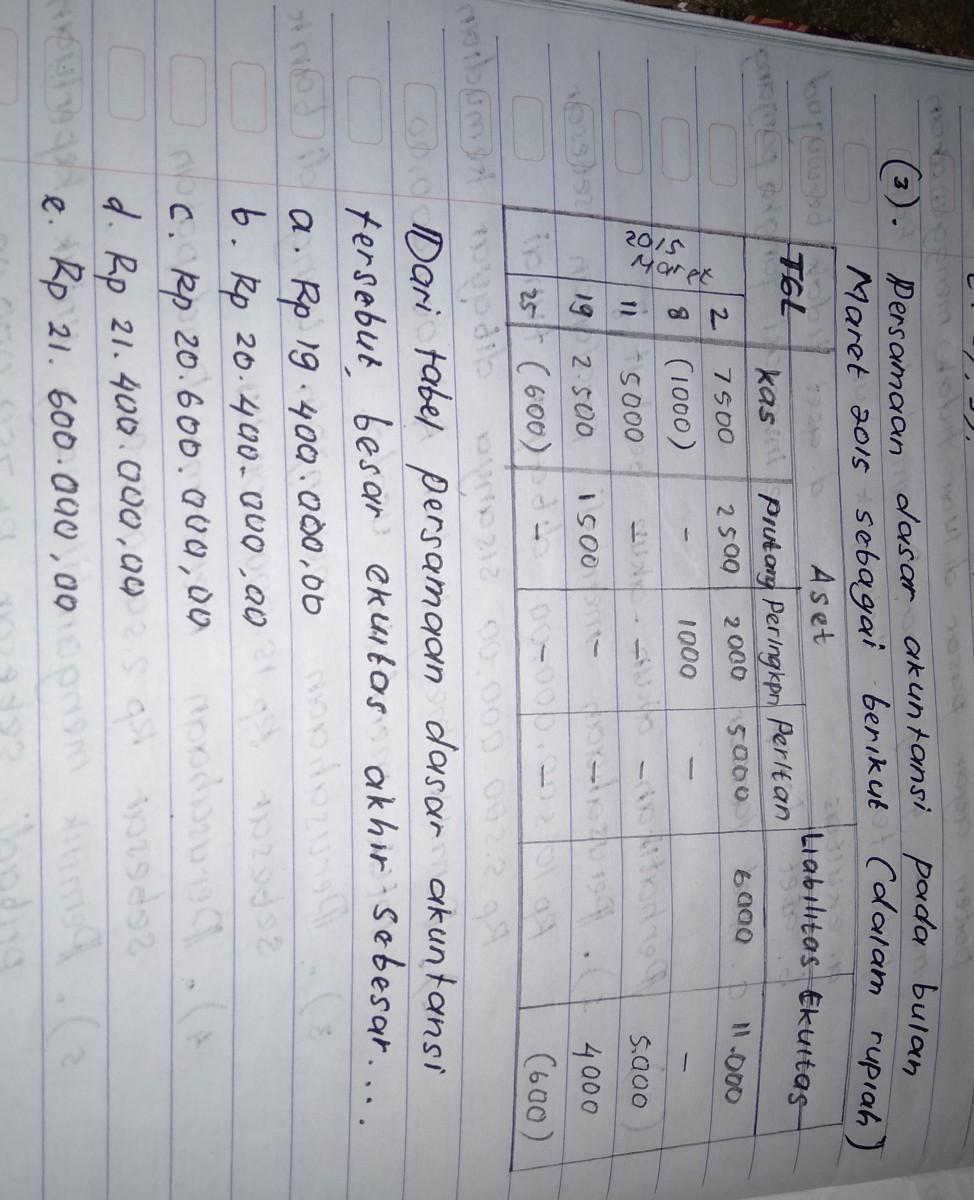 (3). Persamaan dasar akuntansi pada bulan
Maret 2015 sebagai berikut (dalam rupiah)
TGL Aset Liabilitas Ekuitas
kas Piutang Perlngkpn Perltan
2 7500 2500 2000 5000 6000 11.000
8 (1000) - 1000 - -
2015 11 5000 - - - 5.000
19 2500 1500 - - 4000
25 (600) - - - (600)
Dari tabel persamaan dasar akuntansi
tersebut, besar ekuitas akhir sebesar....
a. Rp 19.400.000,00
b. Rp 20.400.000,00
c. Rp 20.600.000,00
d. Rp 21.400.000,00
e. Rp 21.600.000,00